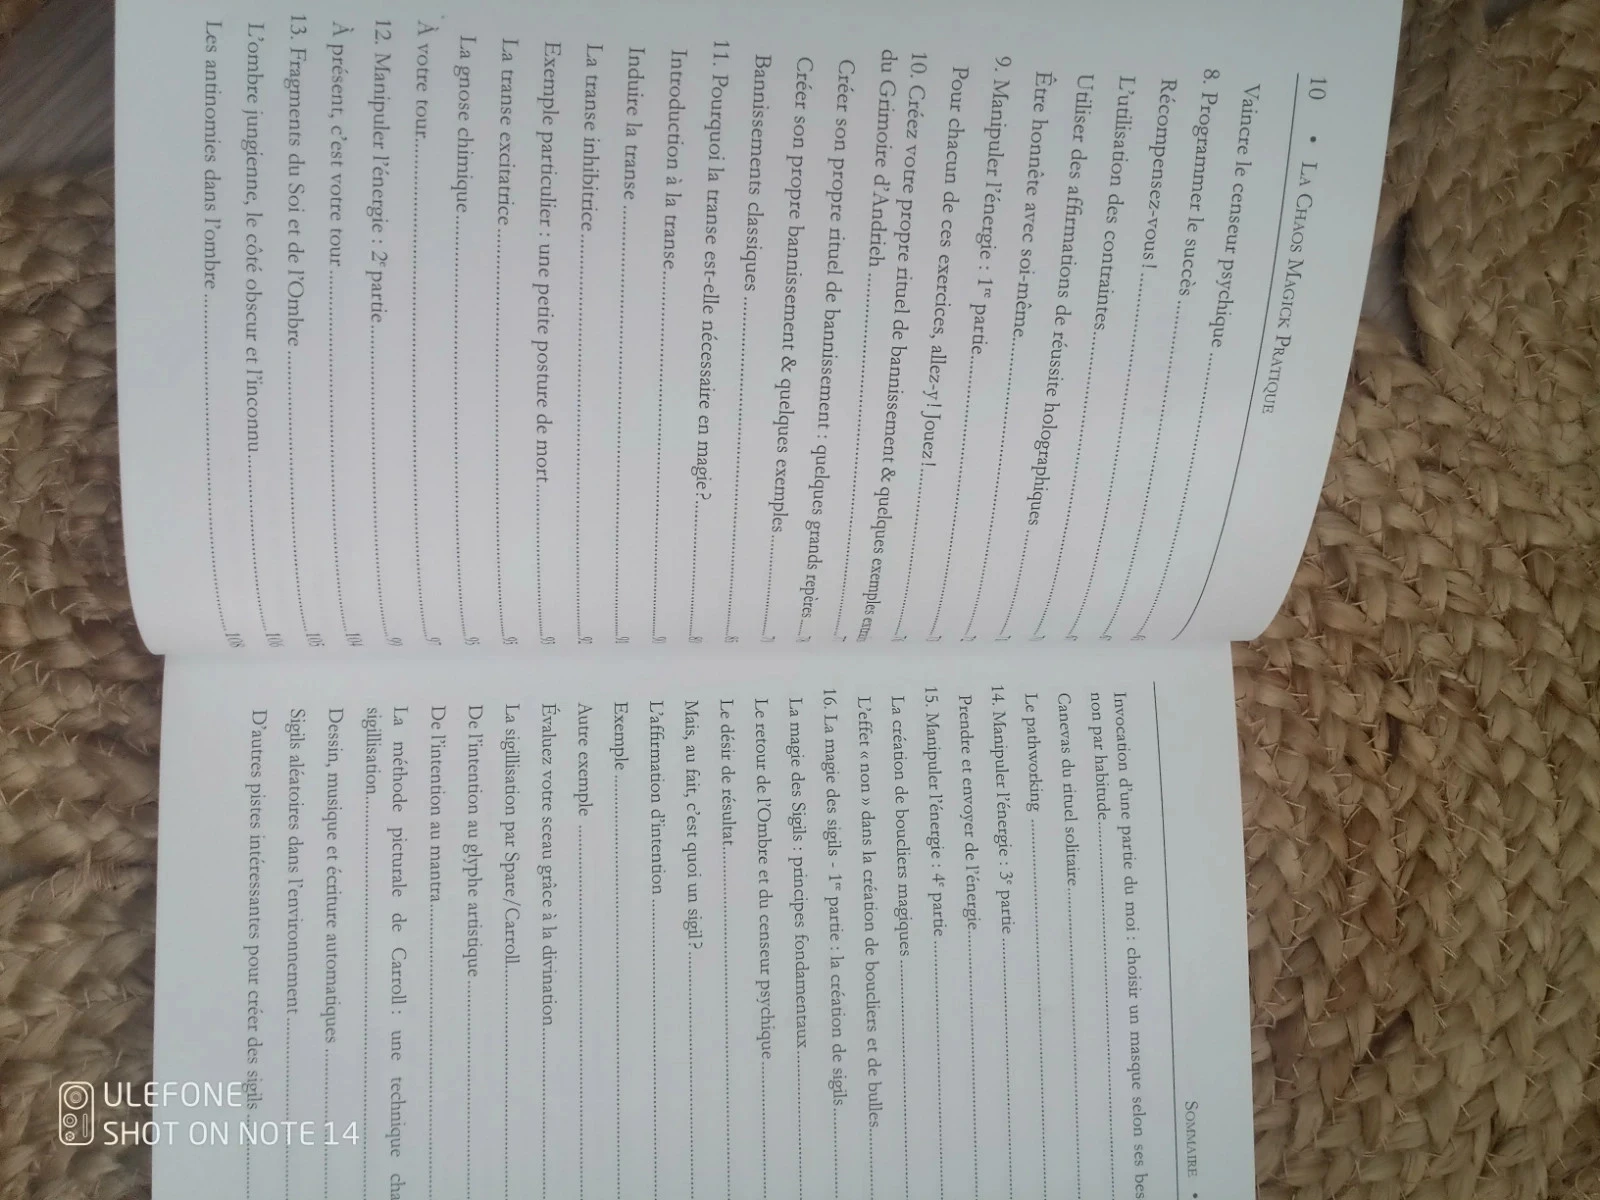 10 • LA CHAOS MAGICK PRATIQUE
Vaincre le censeur psychique
8. Programmer le succès
Récompensez-vous !
L'utilisation des contraintes
Utiliser des affirmations de réussite holographiques
Être honnête avec soi-même
9. Manipuler l'énergie : 1re partie
Pour chacun de ces exercices, allez-y ! Jouez !
10. Créez votre propre rituel de bannissement & quelques exemples
du Grimoire d'Andrieh
Créer son propre rituel de bannissement : quelques grands repères
Créer son propre bannissement & quelques exemples
Bannissements classiques
11. Pourquoi la transe est-elle nécessaire en magie ?
Introduction à la transe
Induire la transe
La transe inhibitrice
Exemple particulier : une petite posture de mort
La transe excitatrice
La gnose chimique
À votre tour
12. Manipuler l'énergie : 2e partie
À présent, c'est votre tour 104
13. Fragments du Soi et de l'Ombre 105
L'ombre jungienne, le côté obscur et l'inconnu 106
Les antinomies dans l'ombre 108
SOMMAIRE •
Invocation d'une partie du moi : choisir un masque selon ses
non par habitude
Canevas du rituel solitaire
Le pathworking
14. Manipuler l'énergie : 3e partie
Prendre et envoyer de l'énergie
15. Manipuler l'énergie : 4e partie
La création de boucliers magiques
L'effet « non » dans la création de boucliers et de bulles
16. La magie des sigils - 1re partie : la création de sigils
La magie des Sigils : principes fondamentaux
Le retour de l'Ombre et du censeur psychique
Le désir de résultat
Mais, au fait, c'est quoi un sigil ?
L'affirmation d'intention
Exemple
Autre exemple
Évaluez votre sceau grâce à la divination
La sigillisation par Spare/Carroll
De l'intention au glyphe artistique
De l'intention au mantra
La méthode picturale de Carroll : une technique
sigillisation
Dessin, musique et écriture automatiques
Sigils aléatoires dans l'environnement
D'autres pistes intéressantes pour créer des sigils
ULEFONE
SHOT ON NOTE 14